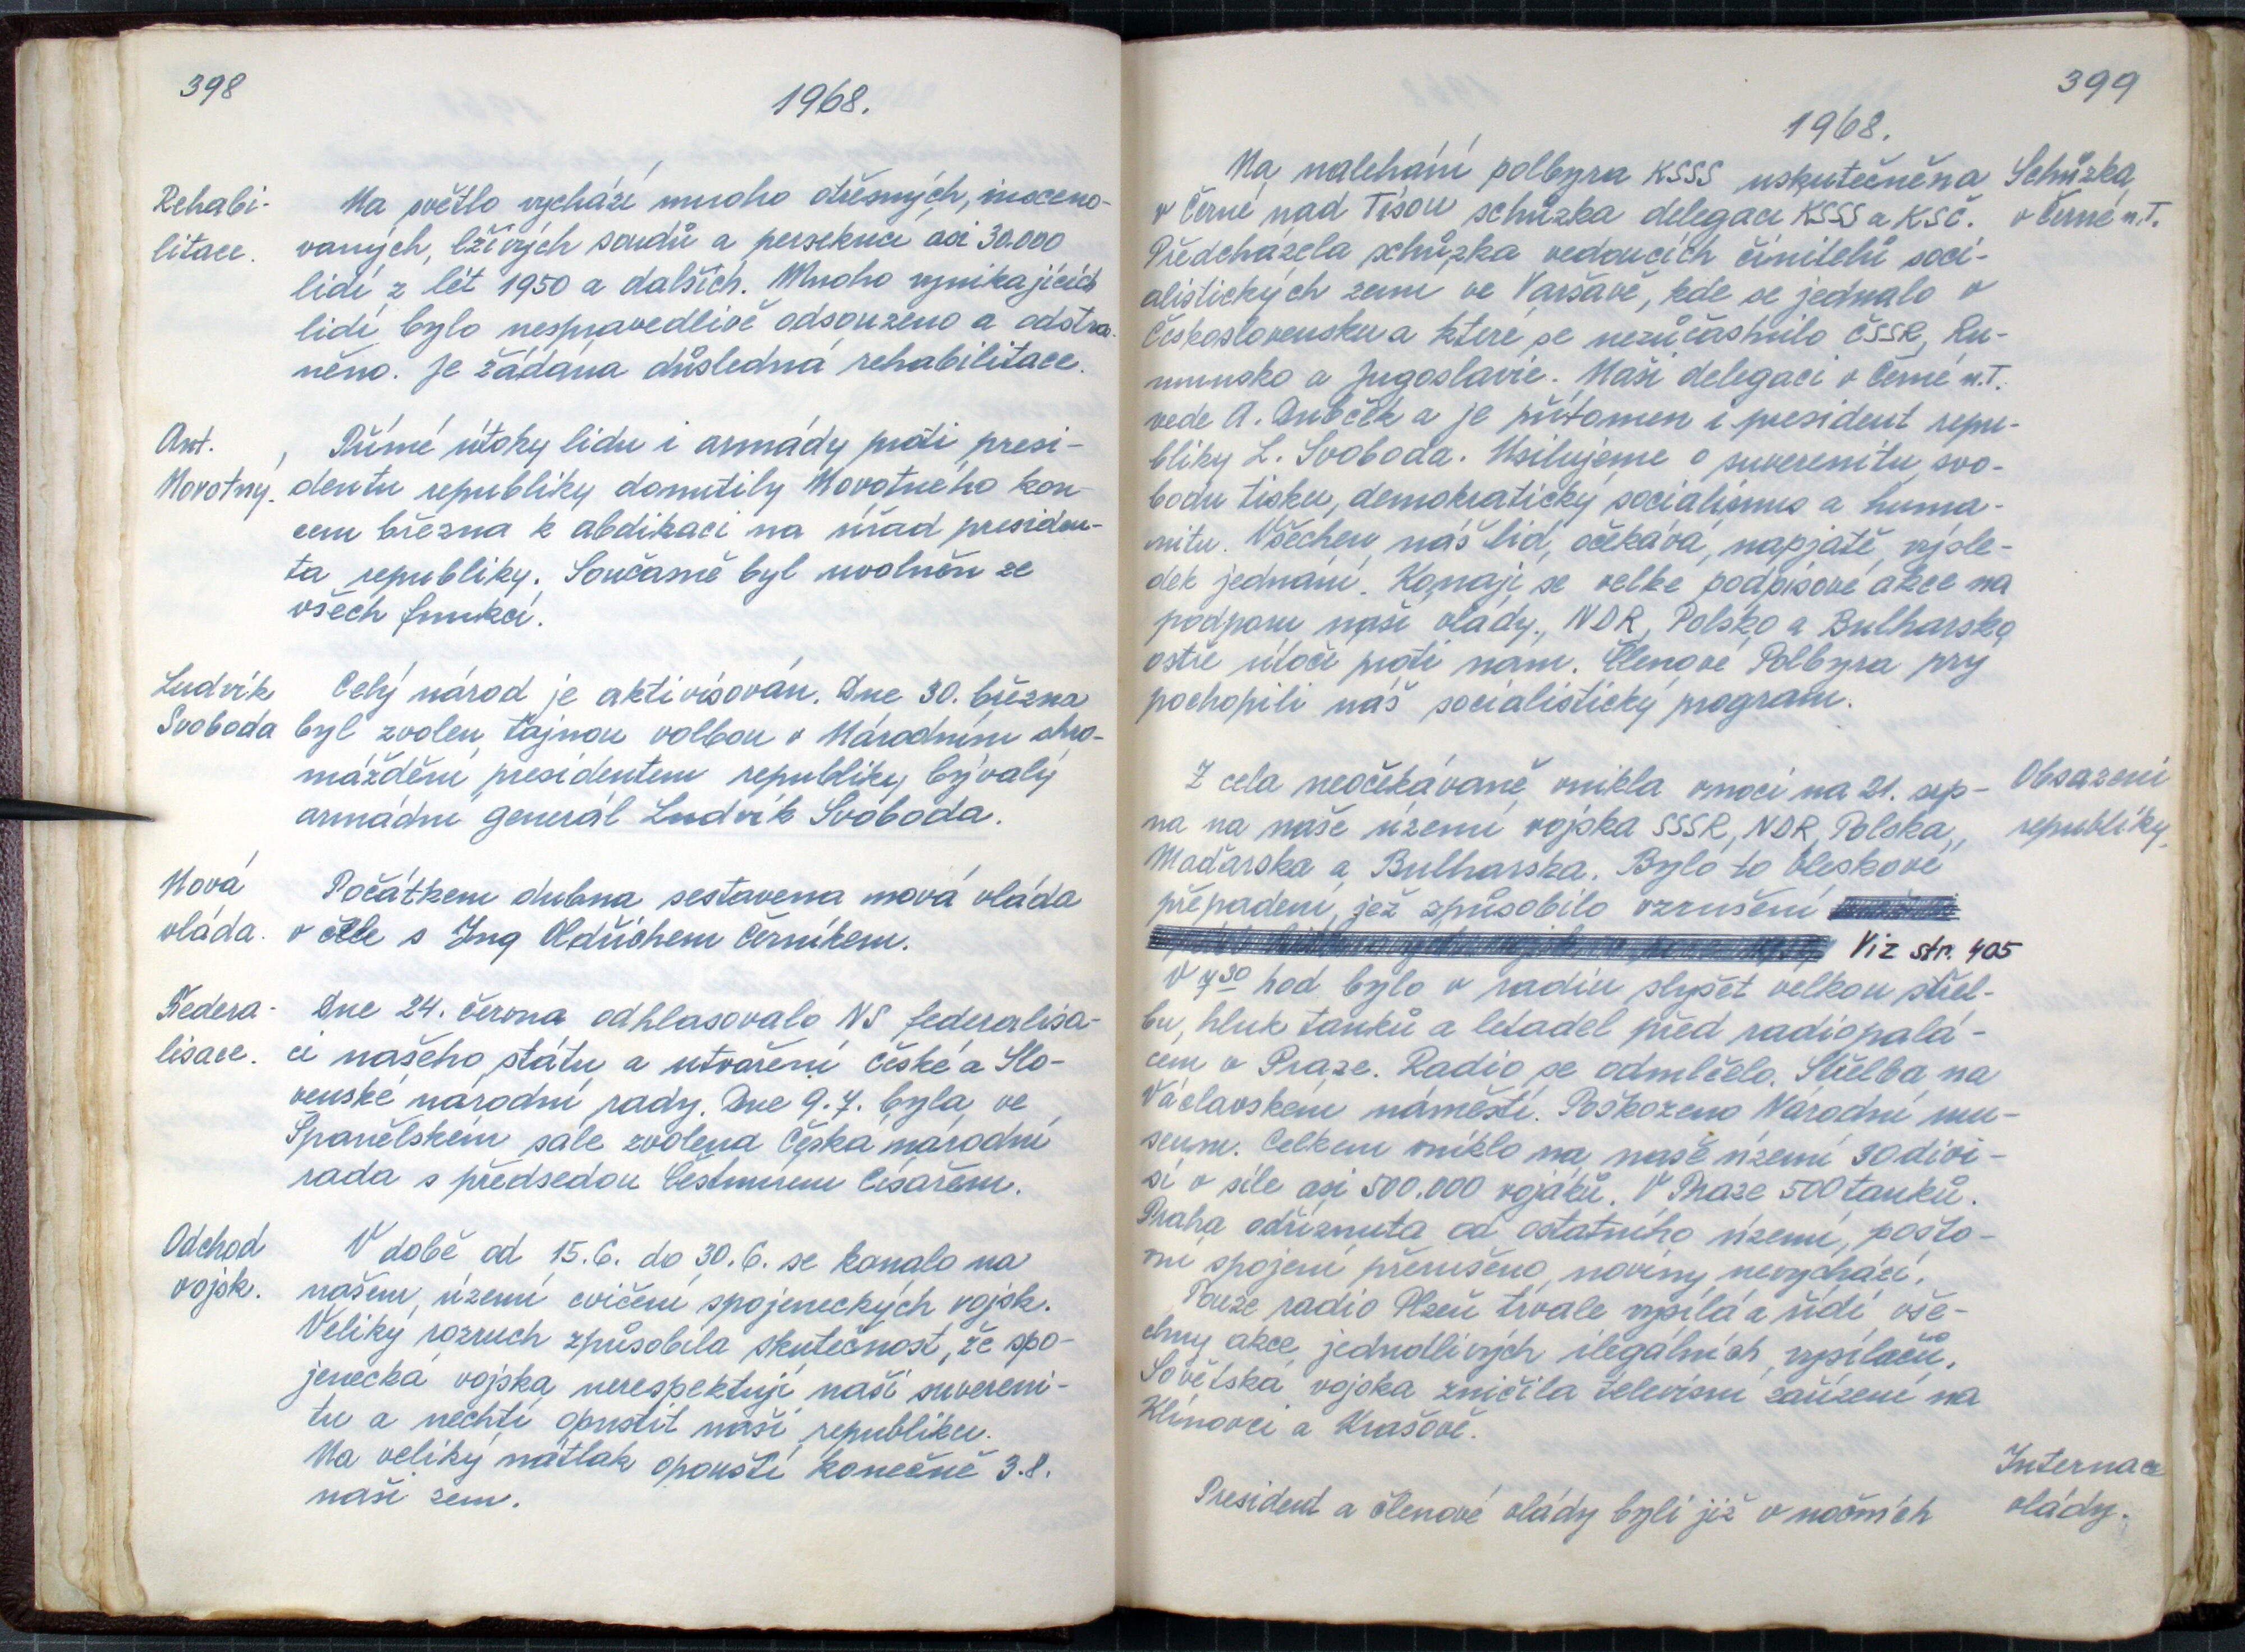 398
1968.
Rehabi-
litace.
Na světlo vychází mnoho otřesných, insceno-
vaných, lživých soudů a persekucí asi 30.000
lidí z lét 1950 a dalších. Mnoho vynikajících
lidí bylo nespravedlivě odsouzeno a odstra-
něno. Je žádána důsledná rehabilitace.
Ant.
Novotný.
Přímé útoky lidu i armády proti presi-
dentu republiky donutily Novotného kon-
cem března k abdikaci na úřad presiden-
ta republiky. Současně byl uvolněn ze
všech funkcí.
Ludvík
Svoboda
Celý národ je aktivisován. Dne 30. března
byl zvolen tajnou volbou v Národním shro-
máždění presidentem republiky bývalý
armádní generál Ludvík Svoboda.
Nová
vláda.
Počátkem dubna sestavena nová vláda
v čele s Ing Oldřichem Černíkem.
Federa-
lisace.
Dne 24. června odhlasovalo NS federalisa-
ci našeho státu a utvoření České a Slo-
venské národní rady. Dne 9.7. byla ve
Španělském sále zvolena Česká národní
rada s předsedou Čestmírem Císařem.
Odchod
vojsk.
V době od 15.6. do 30.6. se konalo na
našem území cvičení spojeneckých vojsk.
Veliký rozruch způsobila skutečnost, že spo-
jenecká vojska nerespektují naši suvereni-
tu a nechtí opustit naši republiku.
Na veliký nátlak opouští konečně 3.8.
naši zem.
399
1968.
Na naléhání polbyra KSSS uskutečněna
v Černé nad Tisou schůzka delegací KSSS a KSČ.
Předcházela schůzka vedoucích činitelů soci-
alistických zemí ve Varšavě, kde se jednalo o
Československu a které se nezúčastnilo ČSSR, Ru-
munsko a Jugoslavie. Naši delegaci v Černé n.T.
vede A. Dubček a je přítomen i president repu-
bliky L. Svoboda. Usilujeme o suverenitu, svo-
bodu tisku, demokratický socialismus a huma-
nitu. Všechen náš lid očekává napjatě výsle-
dek jednání. Konají se velké podpisové akce na
podporu naší vlády. NDR, Polsko a Bulharsko
ostře útočí proti nám. Členové Polbyra prý
pochopili náš socialistický program.
Schůzka
v Černé n.T.
Z cela neočekávaně vnikla v noci na 21. srp-
na na naše území vojska SSSR, NDR, Polska,
Maďarska a Bulharska. Bylo to bleskové
přepadení, jež způsobilo vzrušení
Viz str. 405
Obsazení
republiky.
V 7³⁰ hod bylo v radiu slyšet velkou střel-
bu, hluk tanků a letadel před radiopalá-
cem v Praze. Radio se odmlčelo. Střelba na
Václavském náměstí. Poškozeno Národní mu-
seum. Celkem vniklo na naše území 30 divi-
sí v síle asi 500.000 vojáků. V Praze 500 tanků.
Praha odříznuta od ostatního území, pošto-
vní spojení přerušeno, noviny nevychází.
Pouze radio Plzeň trvale vysílá a řídí vše-
chny akce jednotlivých ilegálních vysílačů.
Sovětská vojska zničila televisní zařízení na
Klínovci a Krašově.
President a členové vlády byli již v nočních
Internace
vlády.